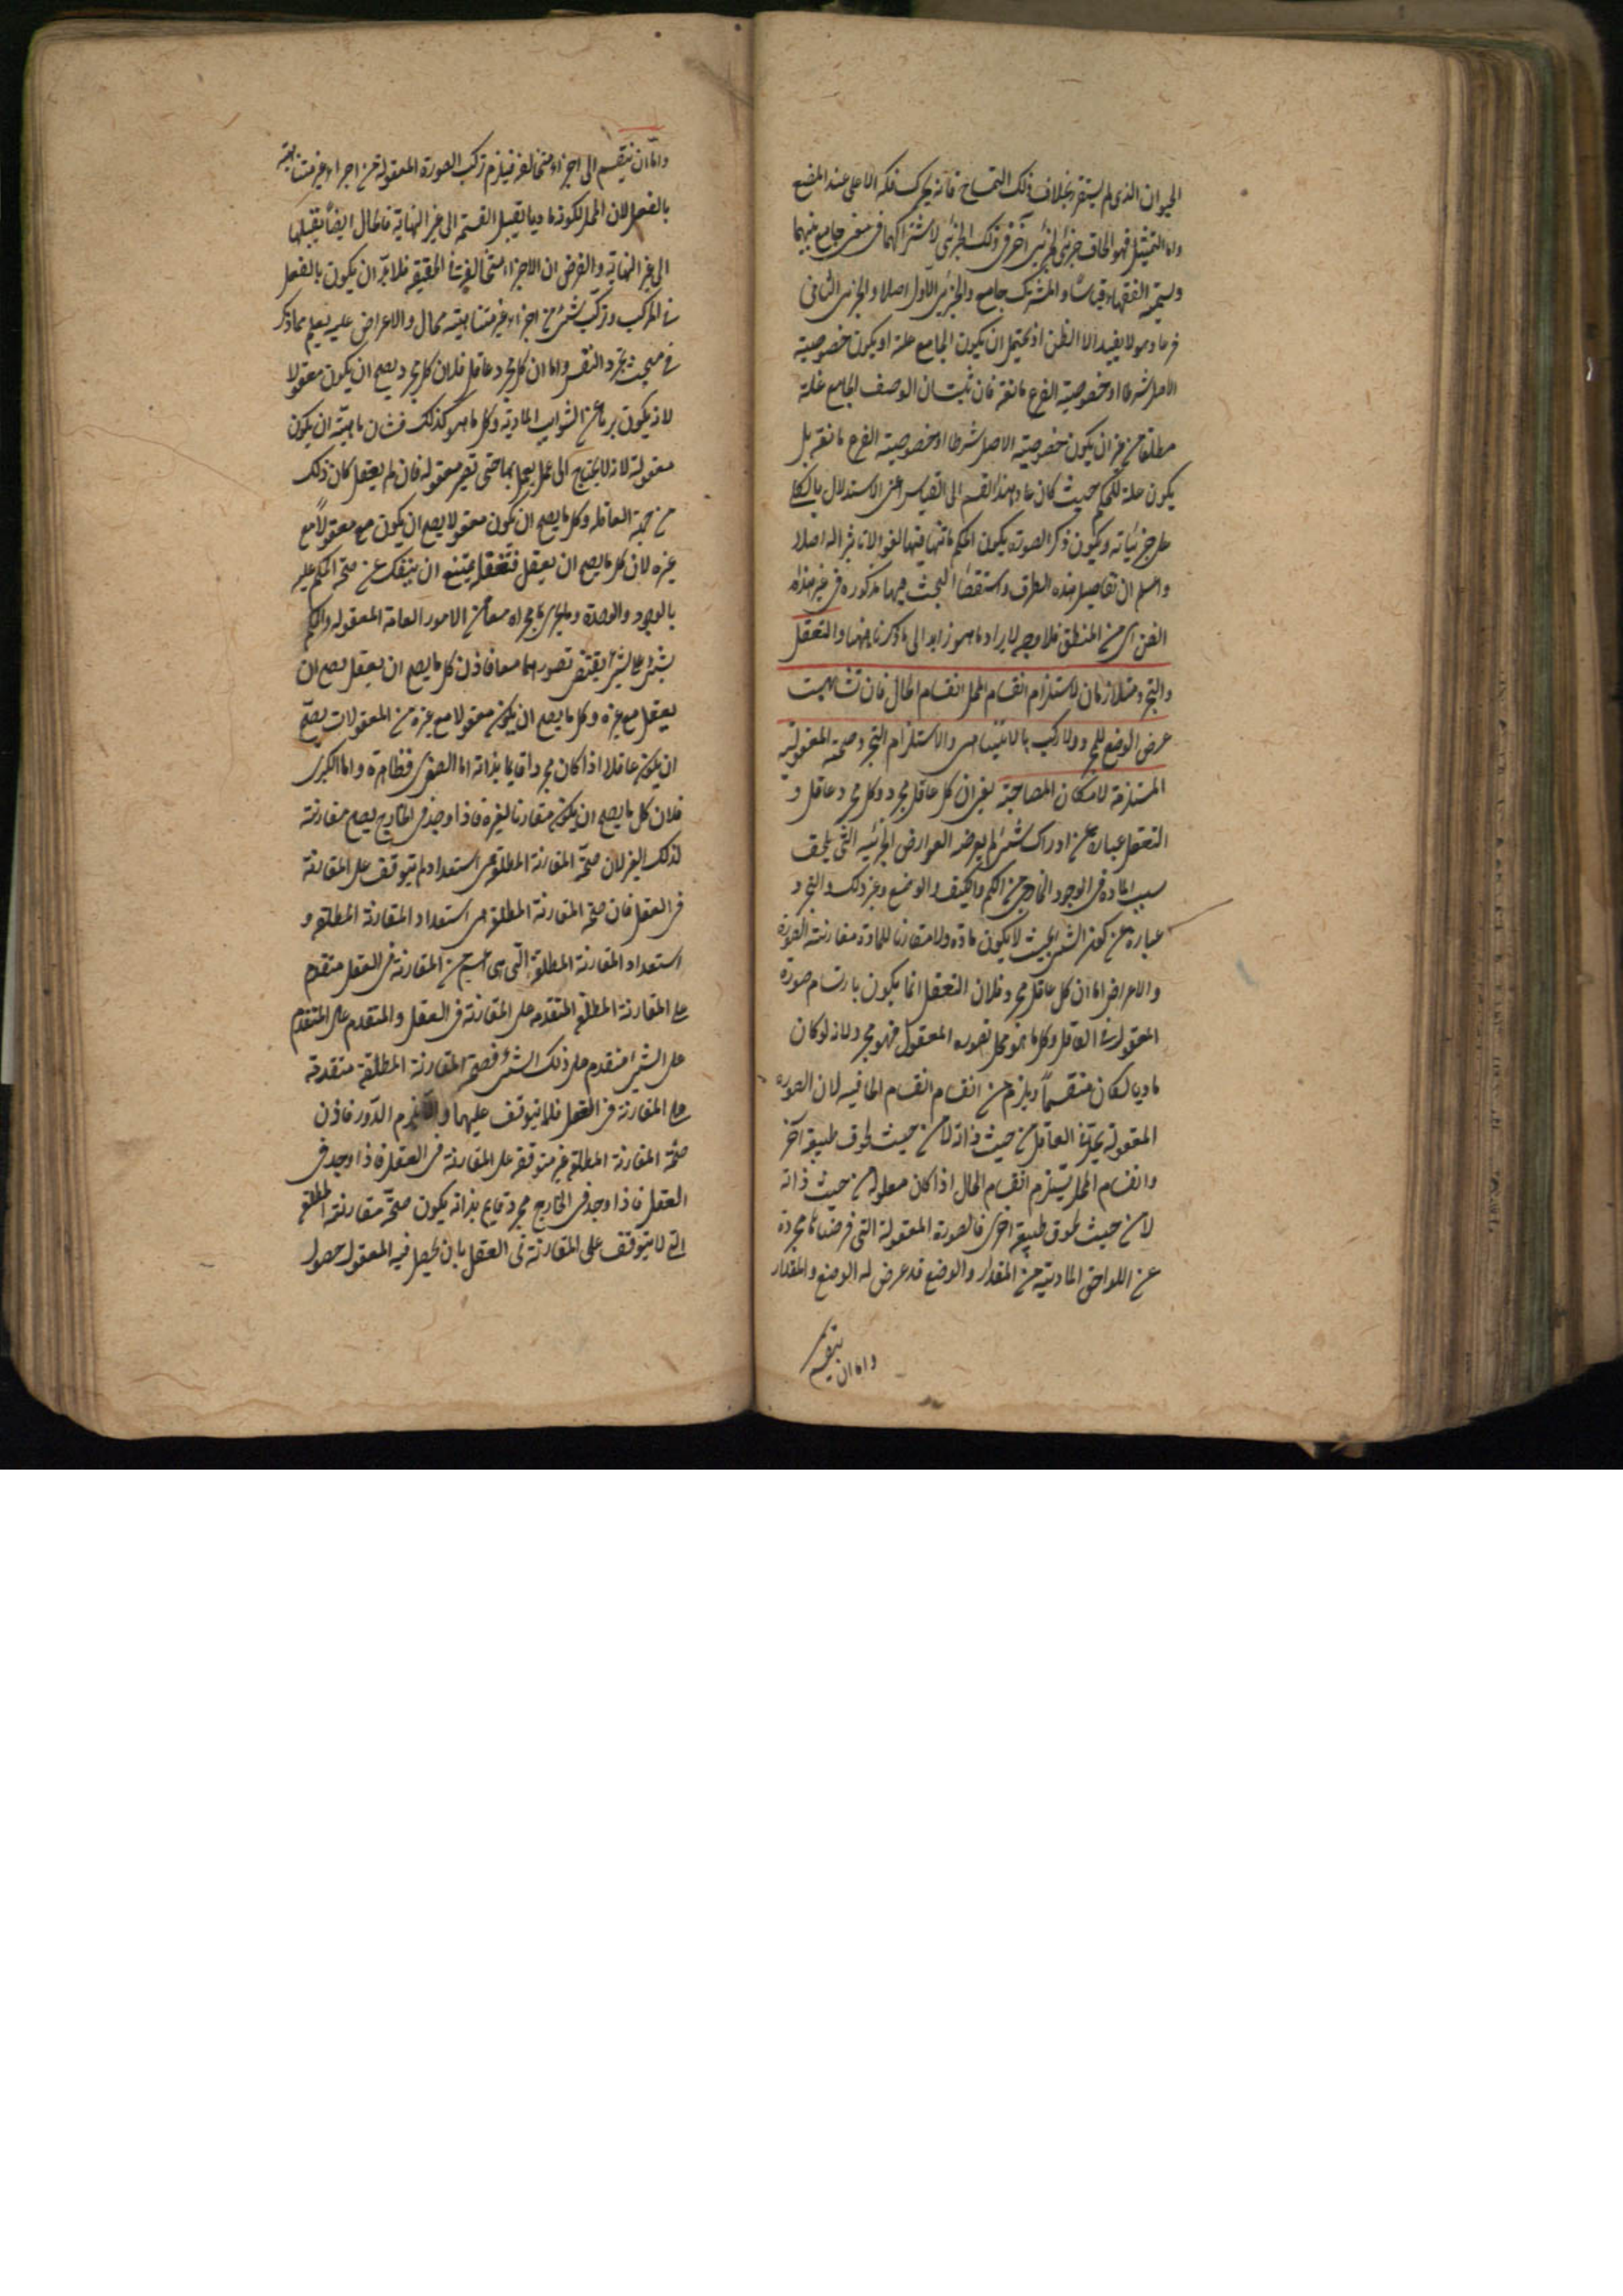 الحيوان الذى لم يستقر بخلاف ذلك التمساح فانه يحرك فكه الاعلى عند المضغ
واما التمثيل فهو الحاق جزئى بجزئى آخر فى ذلك الجزئى لاشتراكهما فى معنى جامع بينهما
ويسميه الفقهاء قياسا والمشترك جامع والجزئى الاول اصلا والجزئى الثانى
فرعا وهو لا يفيد الا الظن اذ يحتمل ان يكون الجامع علة او يكون خصوصية
الاصل شرطا او خصوصية الفرع مانعة فان ثبت ان الوصف الجامع علة
مطلقا من غير ان يكون خصوصية الاصل شرطا او خصوصية الفرع مانعة بل
يكون علة للحكم حيث كان عاد هذا القسم الى القياس اعنى الاستدلال بالكلى
على جزئياته ويكون ذكر الصورة يكون الحكم ثابتا فيها لغوا لا تاثير له اصلا
واعلم ان تفاصيل هذه الطرق واستقصاء البحث فيها مذكورة فى غير هذا
الفن اى من المنطق فلا وجه لايراد ما هو زايد الى ما ذكرنا هنا والتعقل
والتجرد متلازمان لاستلزام انقسام المحل انقسام الحال فان تشابهت
عرض الوضع للمجرد ولا تركب بما لا يتناهى والاستلزام التجرد صحة المعقولية
المستلزمة لامكان المصاحبة يعنى ان كل عاقل مجرد وكل مجرد عاقل و
التعقل عبارة عن ادراك شئ لم يعرضه العوارض الجزئيه التى يلحق
بسبب المادة فى الوجود الخارجى من الكم والكيف والوضع وغير ذلك والتجرد
عبارة عن كون الشئ بحيث لا يكون مادة ولا مقارنا للمادة مقارنة الصورة
والاعراض اما ان كل عاقل مجرد فلان التعقل انما يكون بارتسام صورة
المعقول فى العاقل وكل ما هو محل لصوره المعقول فهو مجرد لانه لو كان
ماديا لكان منقسما ويلزم من انقسام انقسام الحال فيه لان الصوره
المعقولة يحل فى العاقل من حيث ذاته لا من حيث لحوق طبيعة آخر
وانقسام المحل يستلزم انقسام الحال اذا كان حلوله من حيث ذاته
لا من حيث لحوق طبيعة اخرى فالصورة المعقولة التى فرضناها مجردة
عن اللواحق المادية من المقدار والوضع قد عرض له الوضع والمقدار
واما ان ينقسم
واما ان ينقسم الى اجزاء متخالفة فيلزم تركب الصورة المعقولة من اجزاء غير متناهية
بالفعل لان المحل لكونه ماديا يقبل القسمة الى غير النهاية فالحال ايضا يقبلها
الى غير النهاية والفرض ان الاجزاء متخالفة فى الحقيقة فلا بد ان يكون بالفعل
فى المركب وتركب شئ من اجزاء غير متناهية محال والاعراض عليه يعلم مما ذكر
فى مبحث تجرد النفس واما ان كل مجرد عاقل فلان كل مجرد يصح ان يكون معقولا
لانه يكون بريا عن الشوايب المادية وكل ما هو كذلك فشان ماهيته ان يكون
معقولة لانه لا يحتاج الى عمل يعمل بها حتى تصير معقوله فان لم يعقل كان ذلك
من جهة العاقله وكل ما يصح ان يكون معقولا يصح ان يكون معقولا مع
غيره لان كل ما يصح ان يعقل فتعقله يمتنع ان ينفك عن صحة الحكم عليه
بالوجود والوحدة وما يجرى مجراه معا من الامور العامة المعقوله والحكم
بشئ على شئ يقتضى تصورهما معا فاذن كل ما يصح ان يعقل يصح ان
يعقل مع غيره وكل ما يصح ان يكون معقولا مع غيره من المعقولات يصح
ان يكون عاقلا اذا كان مجردا قايما بذاته اما الصغرى فظاهرة واما الكبرى
فلان كل ما يصح ان يكون مقارنا لغيره فاذا وجد فى الخارج يصح مقارنته
لذلك الغير لان صحة المقارنة المطلقة هى استعداد لم يتوقف على المقارنة
فى العقل فان صحة المقارنة المطلقة هى استعداد المقارنة المطلقة و
استعداد المقارنة المطلقة التى هى اعم من المقارنة فى العقل متقدم
على المقارنة المطلقة المتقدمة على المقارنة فى العقل والمتقدم على المتقدم
على الشئ متقدم على ذلك الشئ فصحة المقارنة المطلقة متقدمة
على المقارنة فى العقل فلا يتوقف عليها والا يلزم الدور فاذن
صحة المقارنة المطلقة غير متوقفة على المقارنة فى العقل فاذا وجد فى
العقل فاذا وجد فى الخارج مجرد قايم بذاته يكون صحة مقارنته المطلقة
التى لا يتوقف على المقارنة فى العقل بان يحصل فيه المعقول حصول